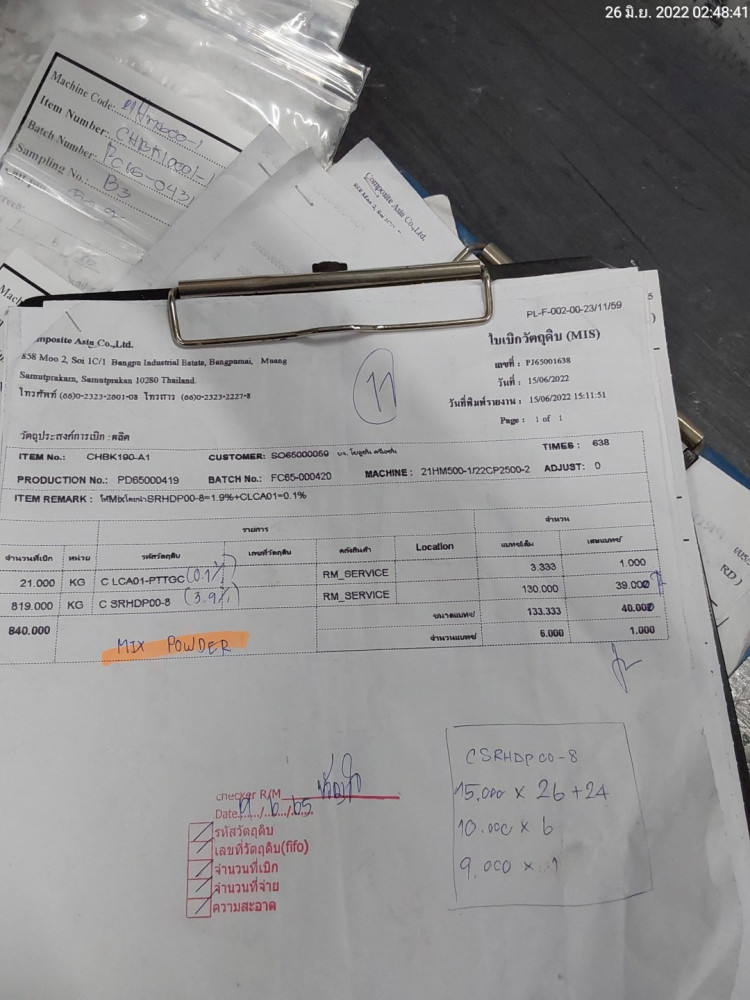 26 มิ.ย. 2022 02:48:41
Machine Code:
Item Number: CHBK1001-1
Batch Number: PC66-0431
Sampling No.: B3
Composite Asia Co.,Ltd.
PL-F-002-00-23/11/59
mposite Asia Co.,Ltd.
ใบเบิกวัตถุดิบ (MIS)
858 Moo 2, Soi 1C/1 Bangpu Industrial Estate, Bangpumai, Muang
Samutprakarn, Samutprakan 10280 Thailand.
โทรศัพท์ (66)0-2323-2601-08 โทรสาร (66)0-2323-2227-8
เลขที่ : PJ65001638
วันที่ : 15/06/2022
วันที่พิมพ์รายงาน : 15/06/2022 15:11:51
Page : 1 of 1
11
วัตถุประสงค์การเบิก : ผลิต
ITEM No.: CHBK190-A1 CUSTOMER: SO65000059 TIMES : 638
PRODUCTION No.: PD65000419 BATCH No.: FC65-000420 MACHINE : 21HM500-1/22CP2500-2 ADJUST: 0
ITEM REMARK : SRHDP00-8=1.9%+CLCA01=0.1%
รายการ จำนวน
จำนวนที่เบิก หน่วย รหัสวัตถุดิบ เลขที่วัตถุดิบ คลังสินค้า Location แบทช์เต็ม เศษแบทช์
21.000 KG C LCA01-PTTGC (0.1%) RM_SERVICE 3.333 1.000
819.000 KG C SRHDP00-8 (3.9%) RM_SERVICE 130.000 39.000
840.000 ขนาดแบทช์ 133.333 40.000
จำนวนแบทช์ 6.000 1.000
MIX POWDER
CSRHDP00-8
15.000 x 26 + 24
10.000 x 6
9.000 x 1
checker R/M
Date
รหัสวัตถุดิบ
เลขที่วัตถุดิบ(fifo)
จำนวนที่เบิก
จำนวนที่จ่าย
ความสะอาด
RD)